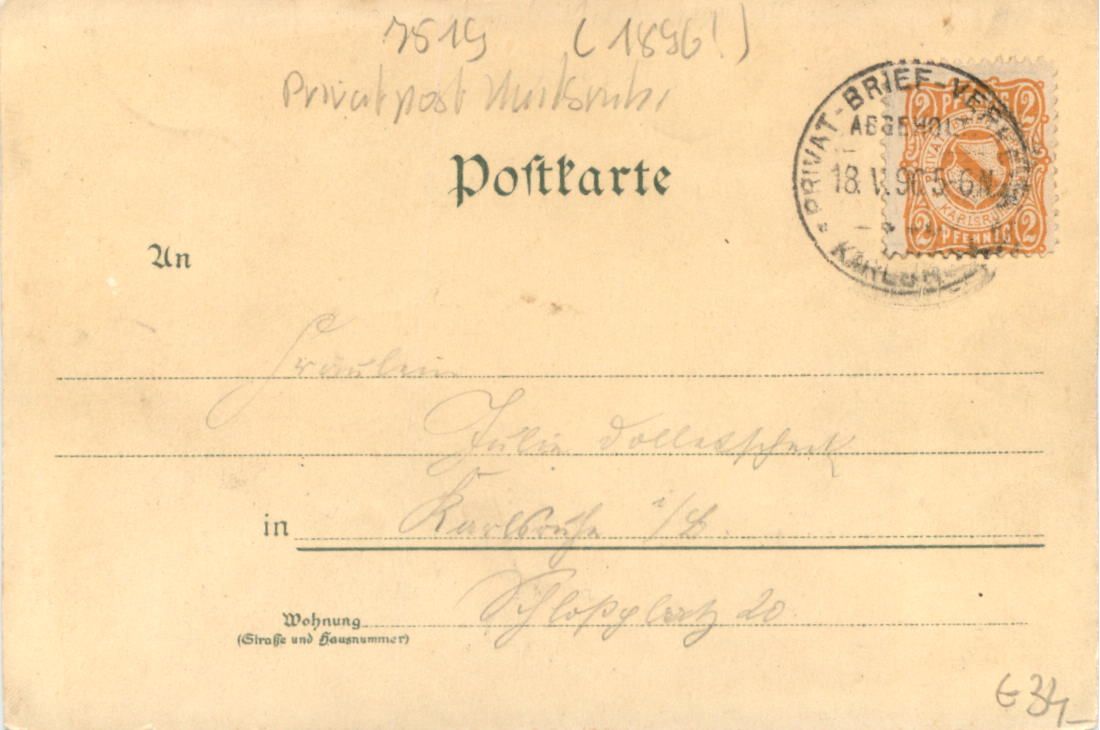 7519 (1896!)
Privatpost Karlsruhe
PRIVAT-BRIEF-VERKEHR
ABGEHOLT
18. V. 96. 5-6 N.
KARLSRUHE
2 PFENNIG 2
PRIVAT
KARLSRUHE
2 PFENNIG 2
Postkarte
An
Fräulein
Julie Dolletscheck
in Karlsruhe i/B.
Schloßplatz 20
Wohnung
(Straße und Hausnummer)
€ 34,-